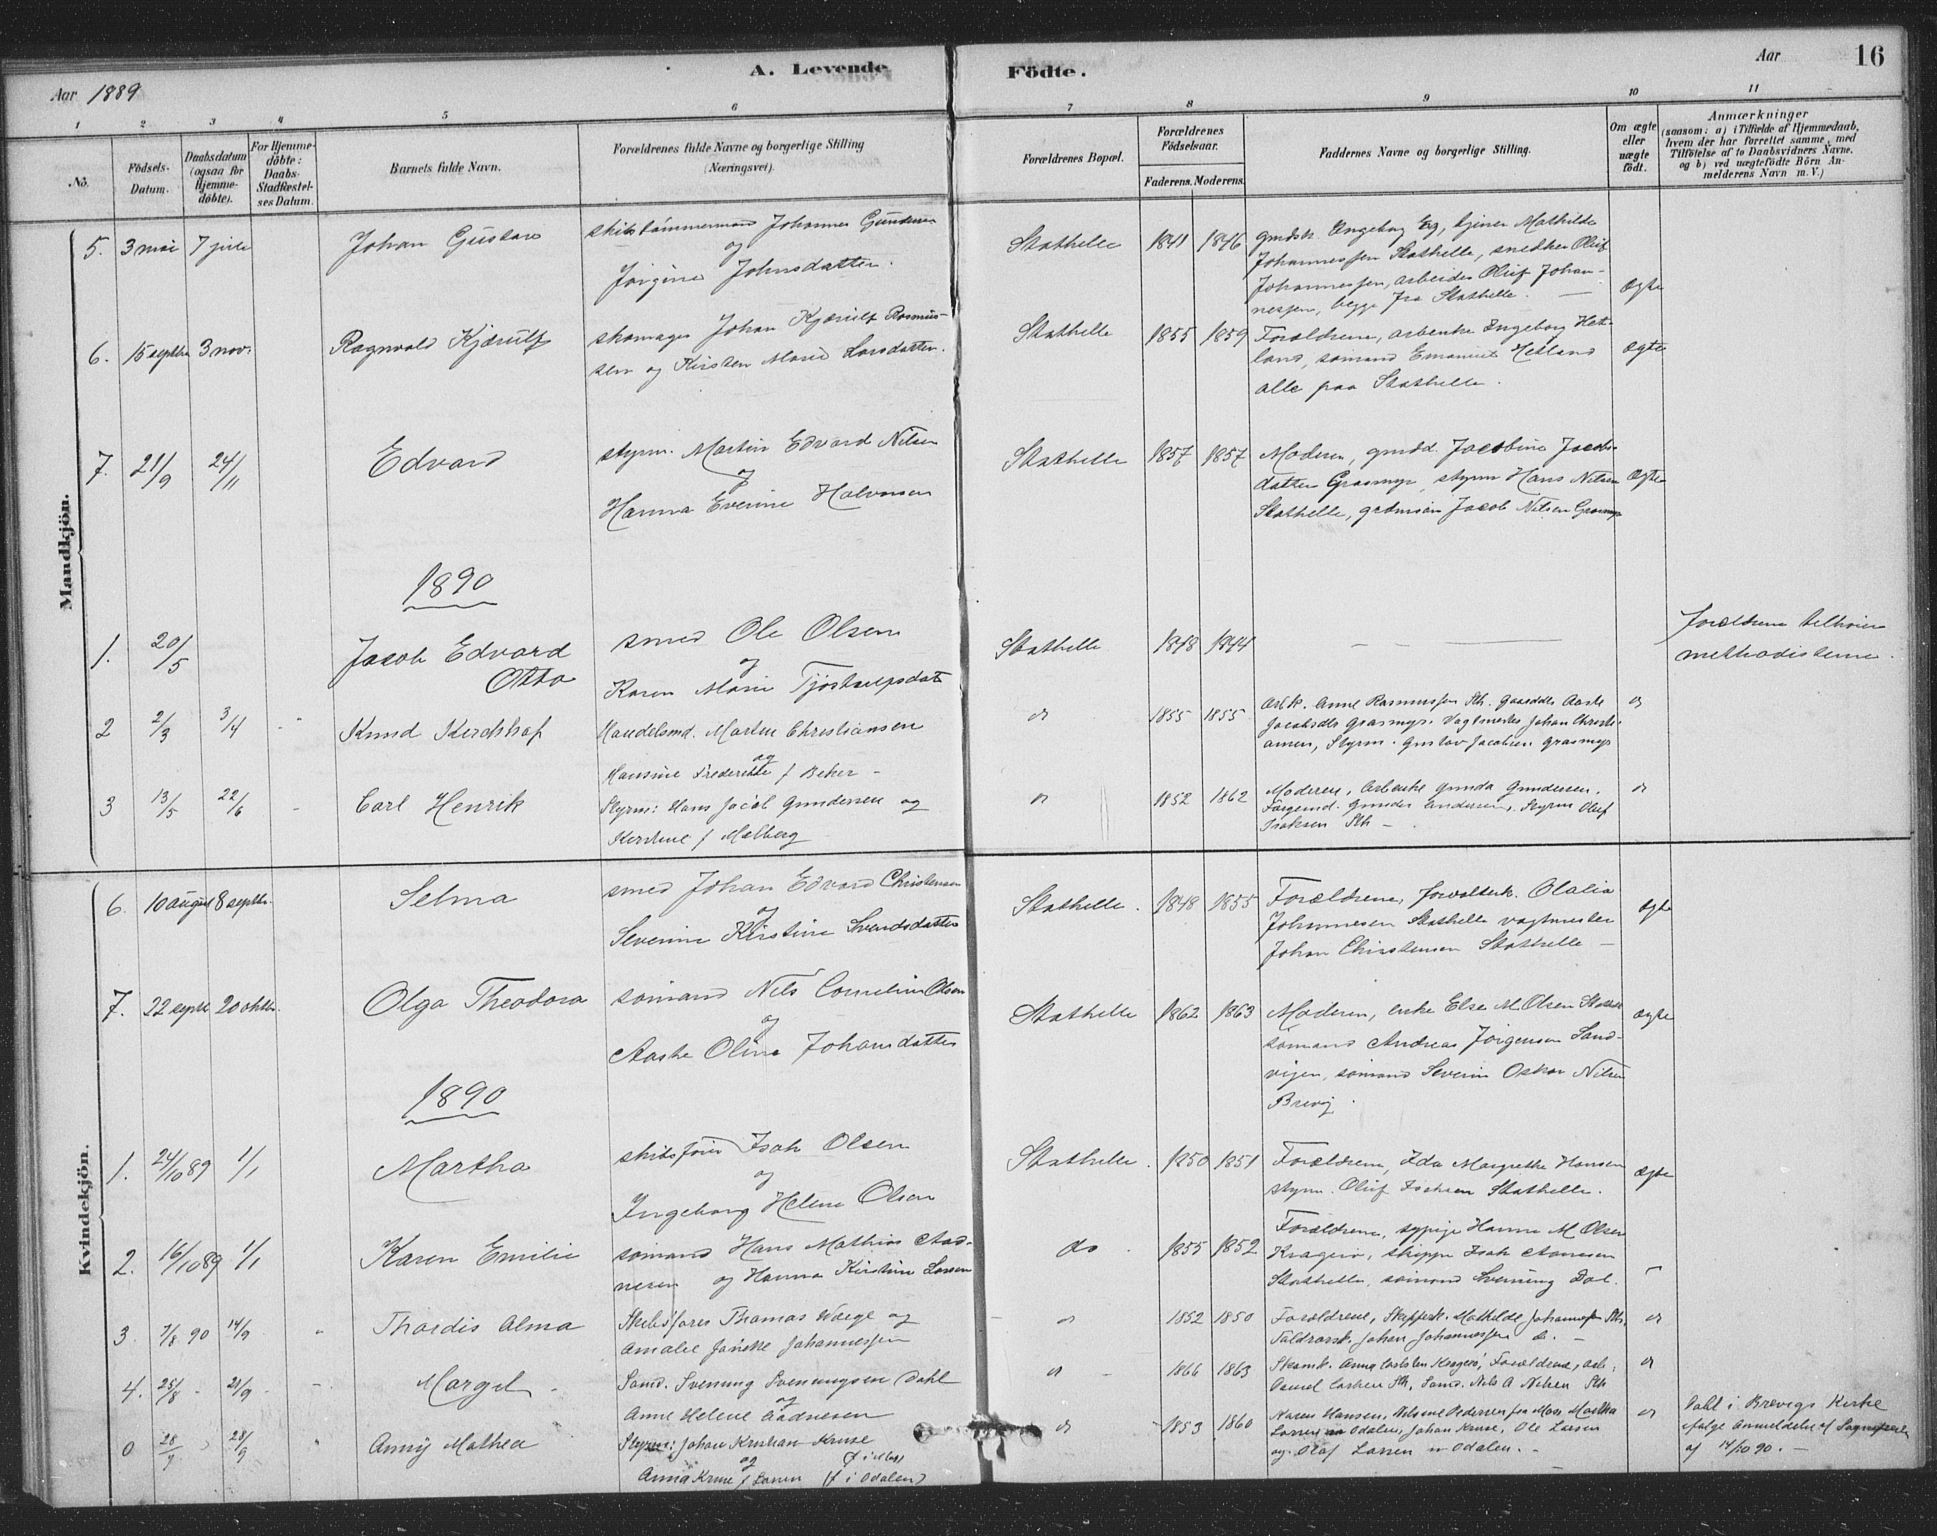 A. Levende Födte.
Aar 1889
Aar 16
1 2 3 4 5 6 7 8 9 10 11
No.
Födsels-Datum.
Daabsdatum (ogsaa for Hjemmedöbte).
For Hjemmedöbte: Daabs-Stadfæstelses Datum.
Barnets fulde Navn.
Forældrenes fulde Navne og borgerlige Stilling (Næringsvei).
Forældrenes Bopæl.
Forældrenes Födselsaar.
Faderens. Moderens.
Faddernes Navne og borgerlige Stilling.
Om ægte eller uægte födt.
Anmærkninger
(saasom: a) i Tilfælde af Hjemmedaab, hvem der har forrettet samme, med Tilföielse af to Daabsvidners Navne, og b) ved uægtefödte Börn Anmelderens Navn m. V.)
Mandkjön.
5. 3 mai 7 juli Johan Gustav
skibstömmermand Johannes Gundersen
og
Jörgine Johnsdatter.
Stathelle 1841 1846
gmdsk. Engeborg Eg, tjener Mathilde
Johannessen Stathelle, snedker Oluf
Johannessen, arbeider Oluf Johan-
nessen, begge fra Stathelle. — Ægte
6. 15 septbr 3 nov. Ragnvald Kjærulf
skomager Johan Kjærulf Rasmus-
sen og Kirsten Marie Larsdatter.
Stathelle 1855 1859
Forældrene, arbenke Ingeborg Het-
land, sömand Emanuel Hetland
alle paa Stathelle. Ægte
7. 21/9 24/11 Edvard
styrm. Martin Edvard Nilsen
og
Hanna Evenine Halvorsen
Stathelle 1857 1857
Moderen, gmdd. Jacobine Jacobs-
datter Grasmyr, styrm Hans Nilsen
Stathelle, grdmsön Jacob Nilsen Grasmyr
Ægte
1890
1. 20/5 Jacob Edvard
Otto
smed Ole Olsen
og
Karen Marie Tjöstulfsdat
Stathelle 1848 1844
Forældrene tilhörer
methodisterne.
2 2/3 3/4 Knud Kerdshaf
Handelsmd. Marten Christiansen
og
Hansine Frederikke f Beker -
do 1855 1855
Arbk. Anne Rasmussen Sth. Gaardds Aaste
Jacobsdtr Grasmyr. Vagtmester Johan Christi-
ansen, Styrm. Gustav Jacobsen Grasmyr
do
3 13/5 22/6 Carl Henrik
Styrm: Hans Jacob Gundersen og
Kirstine f Malberg
do 1852 1862
Moderen, Arbenke Gunda Gundersen,
Færgemd. Gunder Andersen, Styrm Oluf
Isaksen Sth - do
Kvindekjön.
6. 10 august 8 septbr. Selma
smed Johan Edvard Christensen
og
Severine Kirstine Svendsdatter
Stathelle. 1848 1855
Forældrene, forvalterk. Olalia
Johannesen Stathelle vagtmester
Johan Christensen Stathelle —
ægte
7. 22 septbr 20 oktbr. Olga Theodora
sömand Nils Cornelius Olsen
og
Aaste Oline Johansdatter
Stathelle 1862 1863
Moderen, enke Else M. Olsen Stathelle
sömand Andreas Jörgensen Sand-
vigen, sömand Severin Oskar Nilsen
Brevig.
ægte
1890
1. 24/10 89 1/1 Martha
skibsförer Isak Olsen
og
Ingeborg Helene Olsen
Stathelle. 1850 1851
Forældrene, Ida Margrethe Hansen
styrm. Oluf Isaksen Stathelle.
Ægte
2. 16/10 89 1/1 Karen Emilie
sömand Hans Mathias Aad-
nesen og Hanna Kirstine Larsen
do. 1855 1852
Forældrene, sypige Hanne M. Olsen
Kragerö, skipper Isak Aanesen
Stathelle, sömand Svenning Dal.
3. 7/8 90 14/9 Thordis Alma
Skibsförer Thomas Wærge og
Amalie Janikke Johannessen
do 1852 1850
Forældrene, Skipperk. Mathilde Johannessen Sth,
Toldroersk. Johan Johannessen do. - do
4. 25/8 - 21/9 Margit
Sømd. Svenning Svenningsen Dahl
og
Anne Helene Aadnesen
do 1866 1863
Skomk. Anna Carlsten Kragerö, Forældrene, arb.
Daniel Larsen Sth, Sømd. Nils A Nilsen Sth
do
0 28/7 28/9 Anny Mathea
Styrm: Johan Kristian Kruse
(f i Moss)
og
Anna Kruse f Larsen (f i Odalen)
do 1853 1860
Karen Hansen, Nilsine Pedersen fra Moss, Martha
Larsen Odalen, Johan Kruse, Ole Larsen
og Olaf Larsen Odalen. - do
Döbt i Brevigs Kirke
ifølge Anmeldelse af Sognepresten
af 14/10 90. -